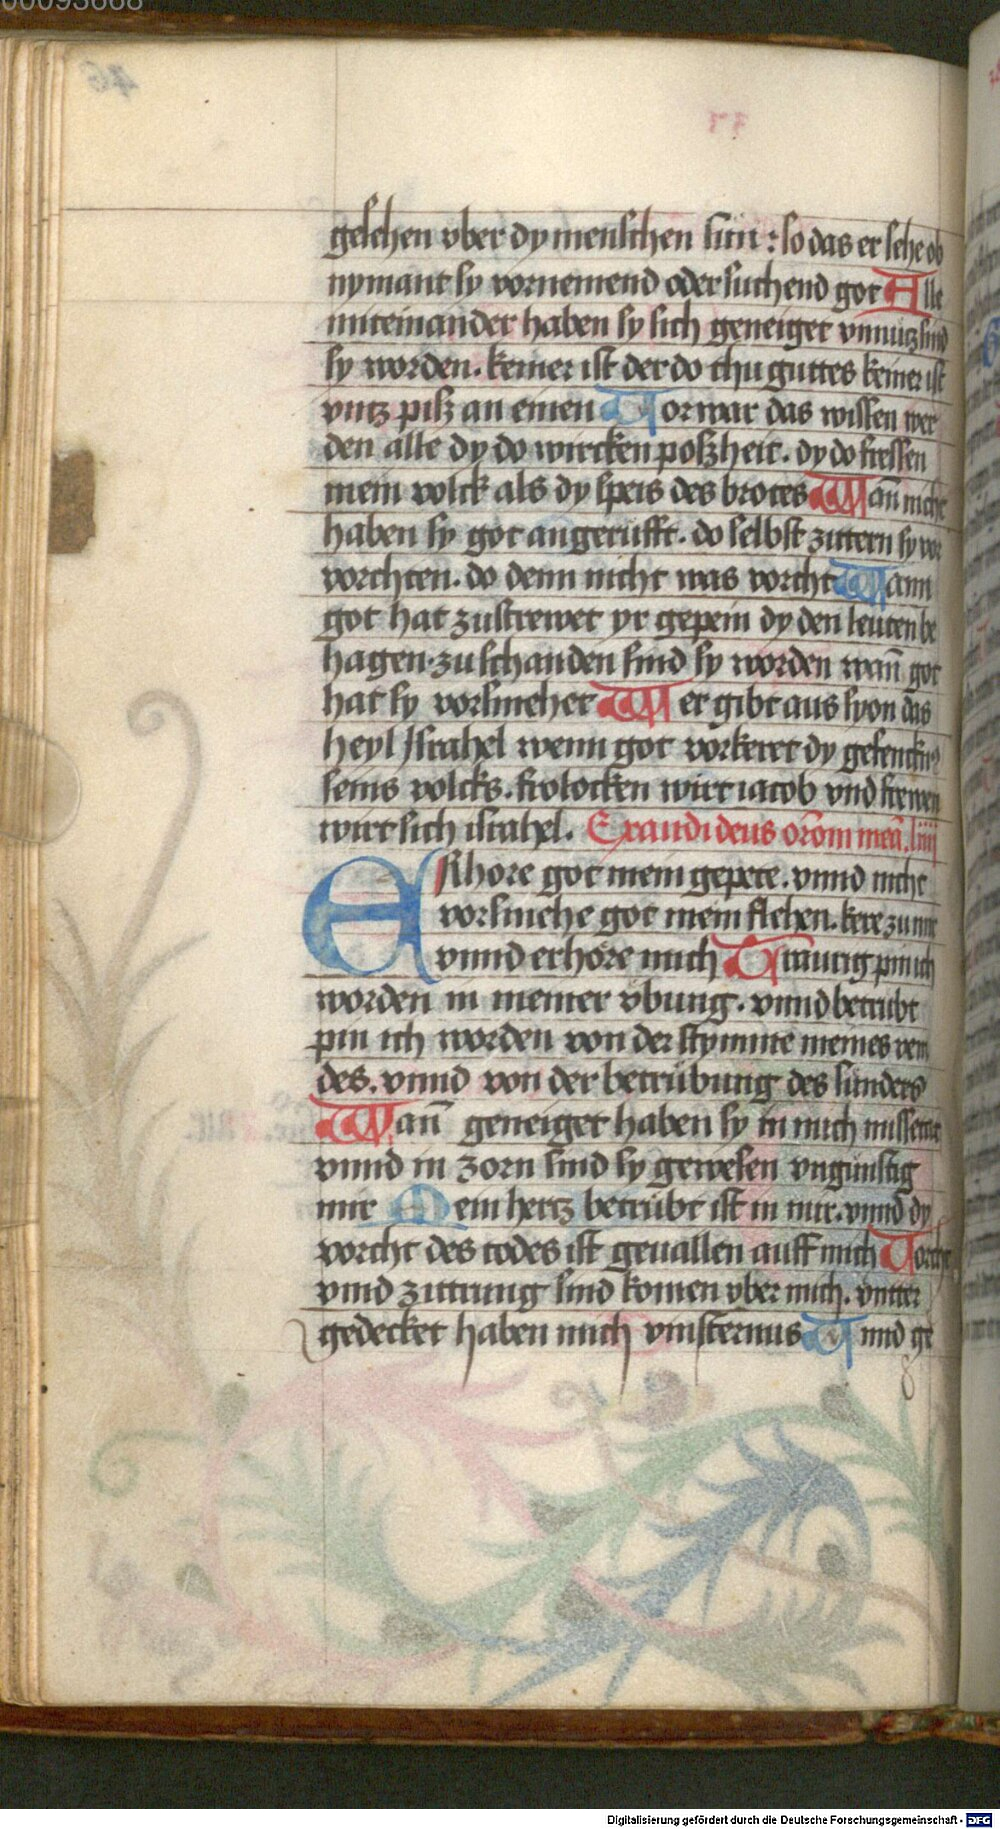 00093668
gesehen vber dy menschen sun : so das er sehe ob
nymant sy vornemend oder suchend got Alle
miteinander haben sy sich geneiget vnnutz sind
sy worden. keiner ist der do thu guttes keiner ist
vntz pisz an einen Vorwar das wissen wer
den alle dy do wircken poszheit. dy do fressen
mein volck als dy speis des brotes Wañ nicht
haben sy got angerufft. do selbst zittern sy vor
vorchten. do denn nicht was vorcht Wann
got hat zustrewet yr gepein dy den leuten be
hagen. zu schanden sind sy worden wañ got
hat sy vorsmehet Wer gibt aus syon das
heyl Jsrahel wenn got vorkeret dy gefenckn
seins volcks. frolocken wirt iacob vnd frewen
wirt sich israhel. Exaudi deus orõm meã. liiij
ERhore got mein gepete. vnnd nicht
vorsmehe got mein flehen. kere zu mir
vnnd erhöre mich Traurig pin ich
worden in meiner vbung. vnnd betrubt
pin ich worden von der stymme meines vein
des. vnnd von der betrübung des sunders
Wañ geneiget haben sy in mich missetat
vnnd in zorn sind sy gewesen vngünstig
mir Mein hertz betrübt ist in mir. vnnd dy
vorcht des todes ist geuallen auff mich Vorcht
vnnd zittrung sind komen vber mich. vntter
gedecket haben mich vinsternus Vnnd ge
Digitalisierung gefördert durch die Deutsche Forschungsgemeinschaft - DFG